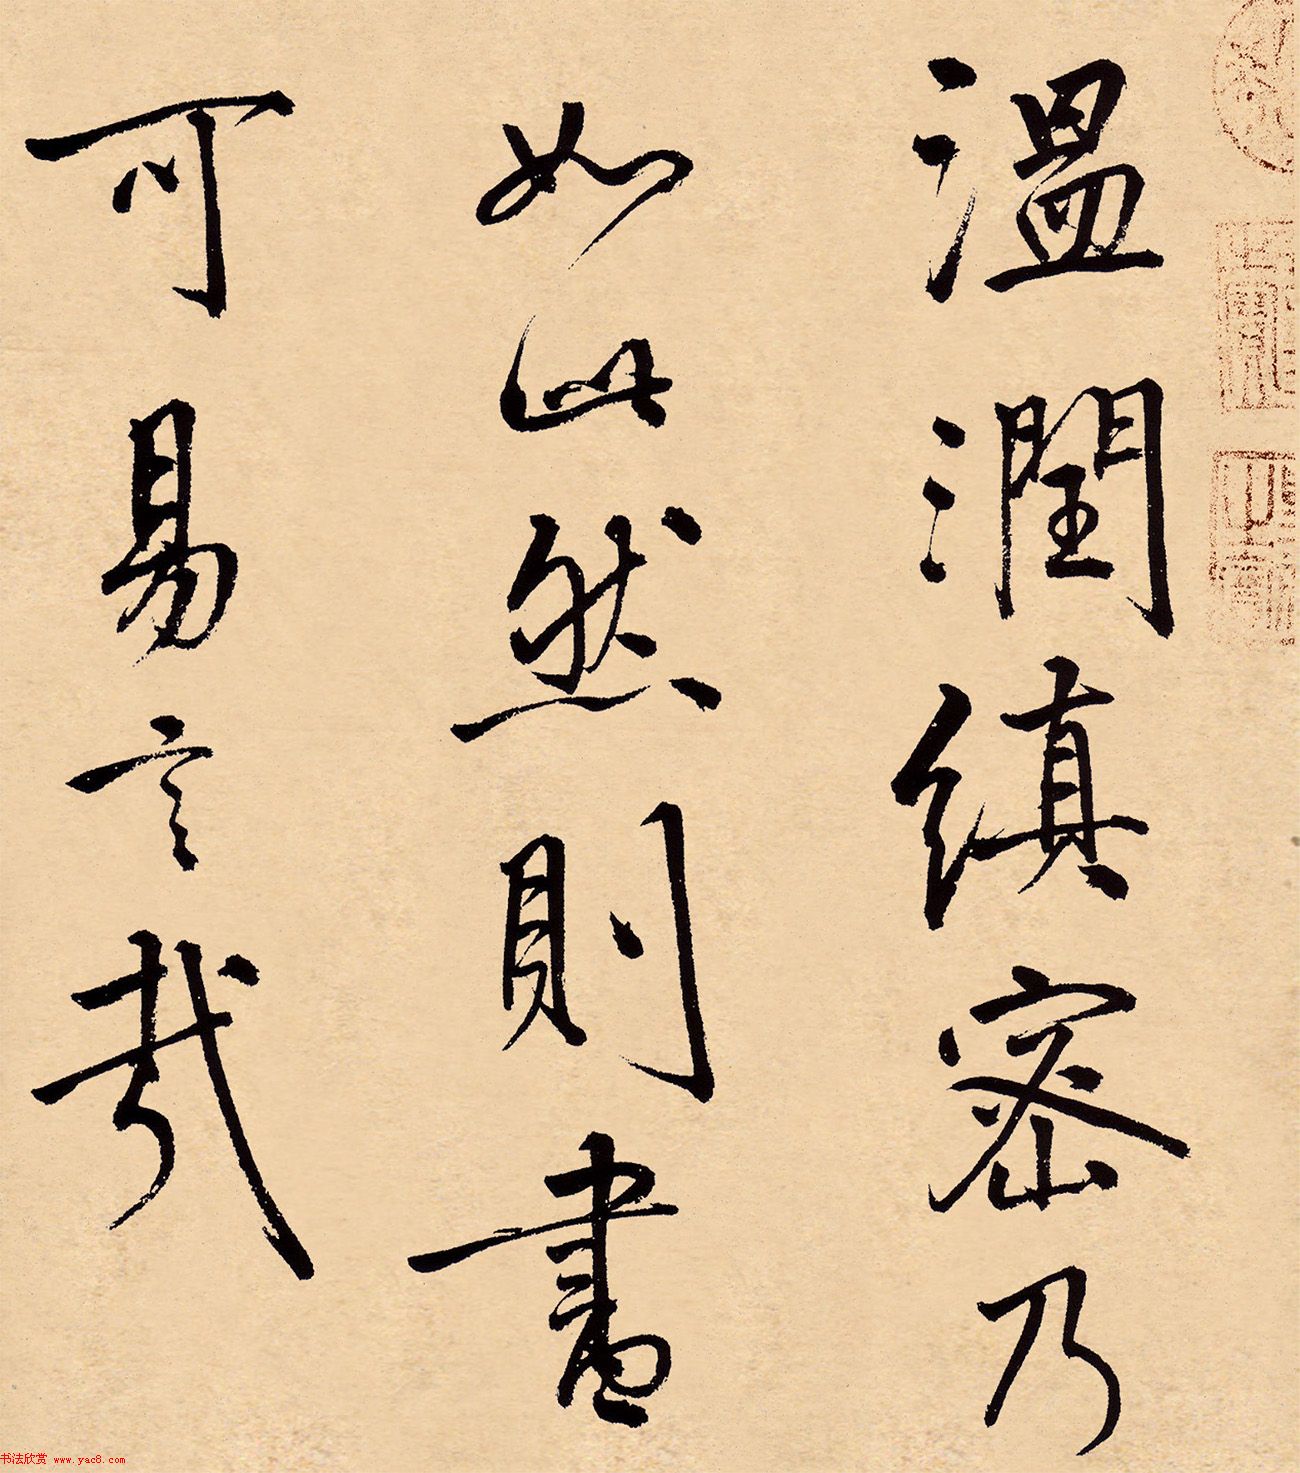 溫潤縝密乃
如此然則畫
可易言哉
书法欣赏 www.yac8.com